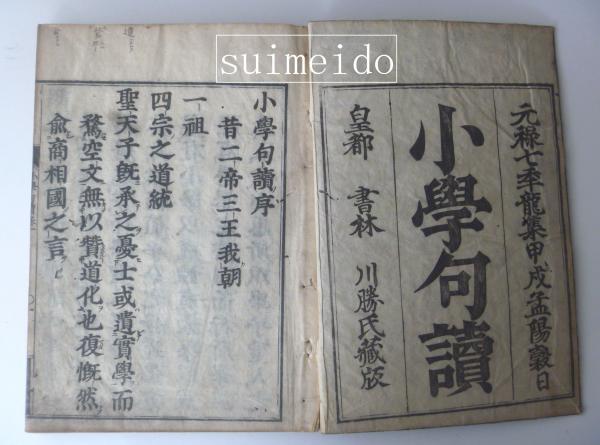 suimeido
元禄七季龍集甲戌孟陽穀日
小學句讀
皇都 書林 川勝氏藏版
小學句讀序
昔二帝三王我朝
一祖
四宗之道統
聖天子既承之憂士或遺實學而
騖空文無以贊道化也復慨然
俞商相國之言